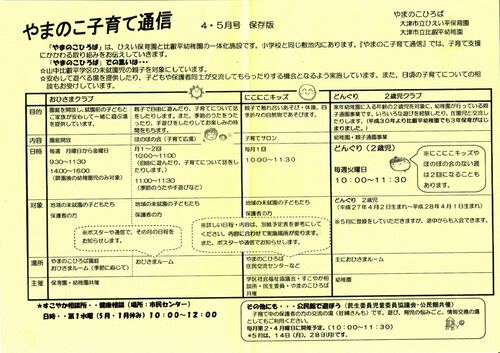 やまのこ子育て通信
4・5月号 保存版
やまのこひろば
大津市立ひえい平保育園
大津市立比叡平幼稚園
『やまのこひろば』は、ひえい保育園と比叡平幼稚園の一体化施設です。小学校と同じ敷地内にあります。『やまのこ子育て通信』では、子育て支援
にかかわる取り組みをお伝えしていきます。
『やまのこひろば』での集いは・・・
☆山中比叡平学区の未就園児の親子を対象にしています。
☆安心して遊べる場を提供したり、子どもや保護者同士が交流してもらったりする機会となるよう実施しています。また、日頃の子育てについての相
談もお受けしています。
おひさまクラブ
にこにこキッズ
どんぐり 2歳児クラブ
目的
園庭を開放し、就園前の子どもと
ご家族が安心して一緒に遊べる場を
提供しています。
親子で自由に遊んだり、子育てについて話
をしたりします。また、季節のうたをうた
ったり、手遊びをしたりしてお楽しみの時
間をもちます。
親子で触れ合いあそび・体操、四
季折々の自然物であそびます。
来年幼稚園に入る年齢の2歳児を対象に、幼稚園が行っている親
子通園事業です。いろいろな遊びを経験したり、在園児と交流し
たりします。(平成30年より比叡平幼稚園でも3年保育がはじ
まりました。)
内容
園庭開放
ほのぼの会(子育て広場)
子育てサロン
幼稚園・親子通園事業
日時
毎週 月曜日から金曜日
9:30～11:30
14:00～16:00
(降園後の幼稚園児のみ対象)
月1～2回
10:00～11:00
(自由に遊んだり、子育てについて話をし
たりします。)
11:00～11:30
(季節のうたや手遊びなど)
毎月1回
10:00～11:30
どんぐり(2歳児)
毎週火曜日
10:00～11:30
※にこにこキッズや
ほのぼの会のない週
は2回になることも
あります。
対象
地域の未就園の子どもたち
保護者の方
地域の未就園の子どもたち
保護者の方
地域の未就園の子どもたち
保護者の方
どんぐり 2歳児
(平成27年4月2日生まれ～平成28年4月1日生まれ)
※5月に登録をしていただきますが、途中からも入会できます。
※ポスターや通信で、その月の日程を
お知らせします。
※詳しい日程・内容は、別紙予定表を参考にして
ください。内容に合わせて実施場所が変わります。
また、ポスターや通信でお知らせします。
場所
やまのこひろば園庭
おひさまルーム(季節に応じて)
おひさまルーム
やまのこひろば
住民交流センターなど
主におひさまルーム
主催
保育園・幼稚園共催
学区社会福祉協議会・すこやか相
談所・民生委員・やまのこひろば
共催
幼稚園
★すこやか相談所・・健康相談(場所:市民センター)
日時・・第1水曜(5月・1月休み) 10:00～12:00
その他にも・・・公民館で遊ぼう(民生委員児童委員協議会・公民館共催)
子育て中の保護者の方の交流の場(妊婦さんも)です。遊び、育児の悩みごと、情報交換の場
としてもご利用ください。
毎月第2・4月曜日に開催予定。(10:00～11:30)
※5月は、14日(月)、28日(月)です。